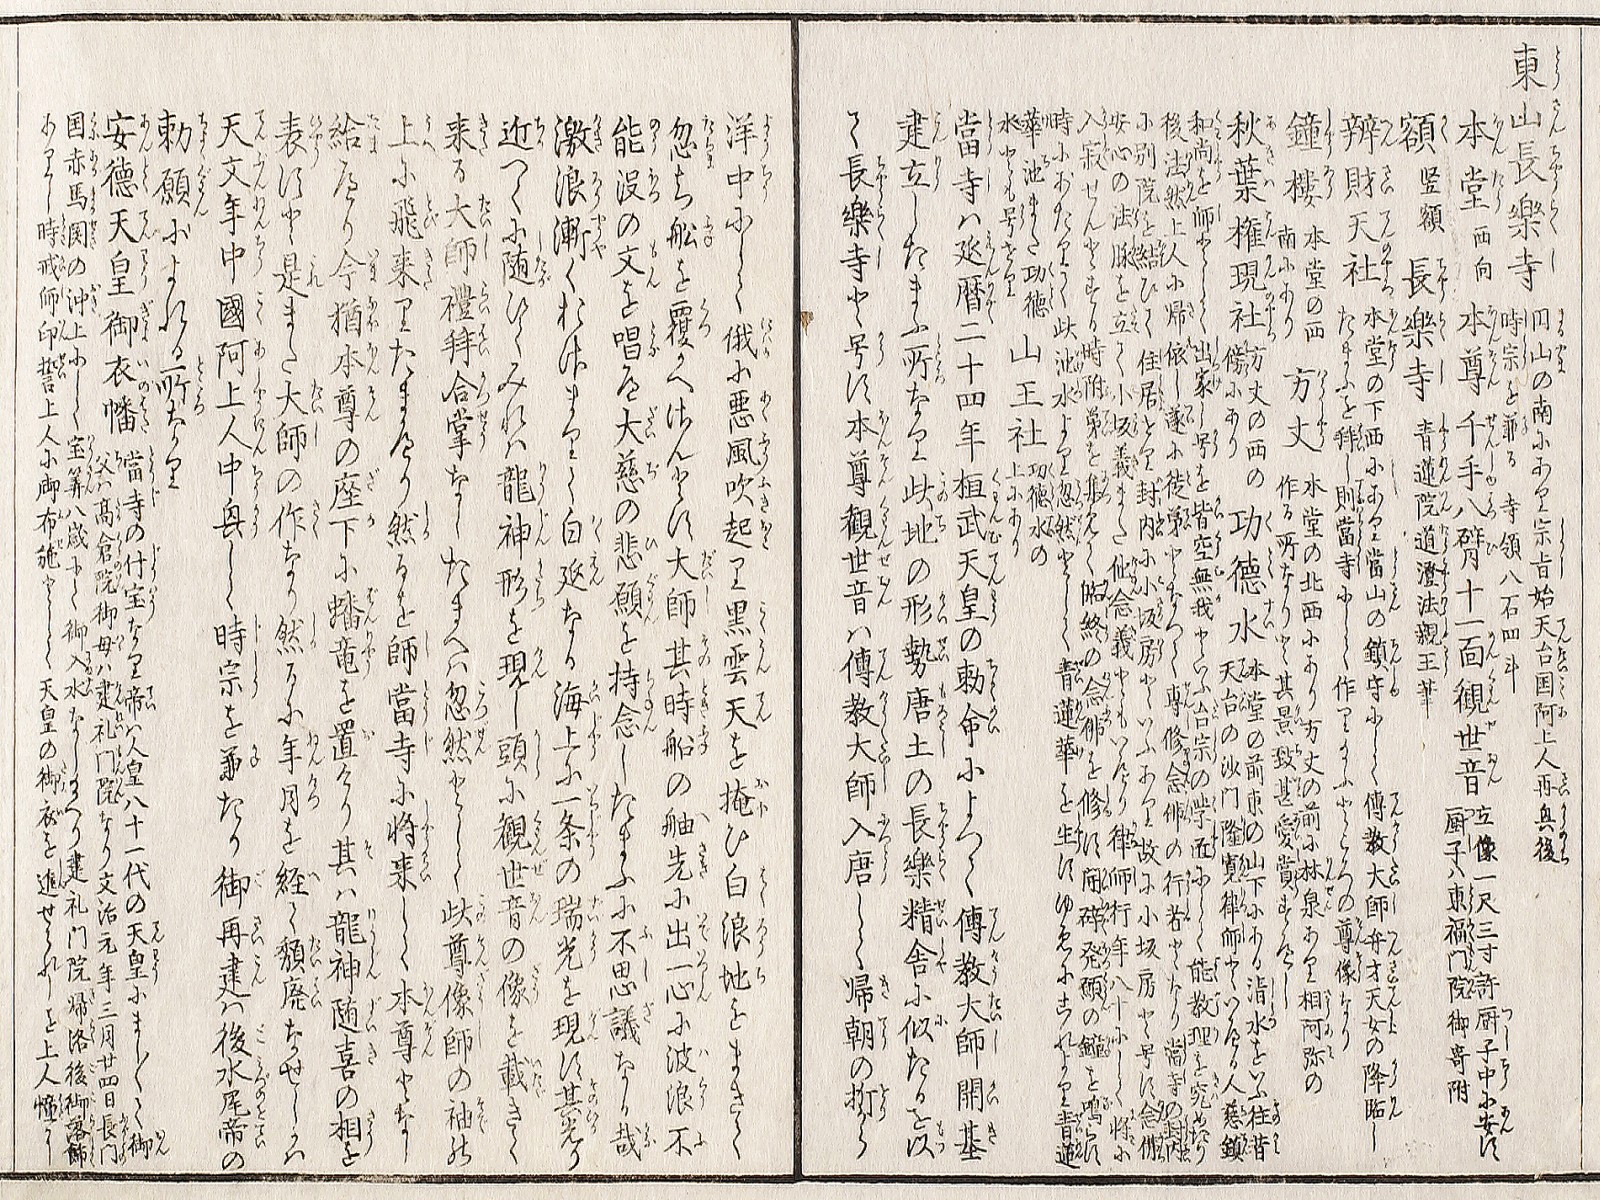 東山長樂寺 円山の南にあり宗旨始天台国阿上人再興後
時宗を兼る 寺領八石四斗
本堂 西向 本尊 千手八臂十一面観世音 立像一尺三寸許厨子中に安す
厨子ハ東福門院御寄附
額 竪額 長樂寺 青蓮院道澄法親王筆
辨財天社 本堂の下西にあり當山の鎮守にして傳教大師弁才天女の降臨し
たまふを拜し則當寺にして作りたまふところの尊像なり
鐘樓 本堂の西
南にあり 方丈 本堂の北西にあり方丈の前に林泉あり相阿弥の
作る所なりとそ其景致甚愛賞すへし
秋葉權現社 方丈の西の
傍にあり 功德水 本堂の前東の山下にある清水をいふ往昔
天台の沙門隆寛律師といへる人慈鎮
和尚を師として出家し号を皆空無我といふ台宗の学匠にして能教理を究めたり
後法然上人に帰依し遂に徒弟となつて専修念佛の行者となり當寺の封内
に別院を結ひて住居とす封内に小坂房といふあり故に小坂房と号す念佛
安心の法脈を立て小坂義また他念義ともいへり律師行年八十にして将に
入寂せんとする時附弟を集て臨終の念佛を修す開碎発願の鐘を鳴らす
時にあたりて此池水より忽然として青蓮華を生すゆゑにこれより青蓮
華池また功德
水とも号せり 山王社 功德水の
上にあり
當寺ハ延暦二十四年桓武天皇の勅命によつて傳教大師開基
建立したまふ所なり此地の形勢唐土の長樂精舎に似たるを以
て長樂寺と号す本尊觀世音ハ傳教大師入唐して帰朝の折から
洋中にして俄に悪風吹起り黒雲天を掩ひ白浪地をまきて
忽ち舩を覆へさんとす大師其時船の舳先に出一心に波浪不
能没の文を唱え大慈の悲願を持念したまふに不思議なる哉
激浪漸くおさまりて白延なる海上に一条の瑞光を現す其光り
近つくに随ひてみれハ龍神形を現し頭に觀世音の像を載きて
来る大師禮拜合掌なしたまへハ忽然として此尊像師の袖の
上に飛来りたまへり然るを師當寺に将来して本尊となし
給へり今猶本尊の座下に蟠竜を置けり其ハ龍神随喜の相を
表すと是また大師の作なり然るに年月を経て頽廃なせしかハ
天文年中國阿上人中興して時宗を兼たり御再建ハ後水尾帝の
勅願によれる所なり
安德天皇御衣幡 當寺の什宝なり帝ハ人皇八十一代の天皇にまし〱て御
父ハ高倉院御母ハ建礼門院なり文治元年三月廿四日長門
国赤馬関の沖上にして宝算八歳にて御入水なしまへり建礼門院帰洛後御落飾
ありし時戒師印誓上人に御布施として天皇の御衣を進せられしを上人幡とし